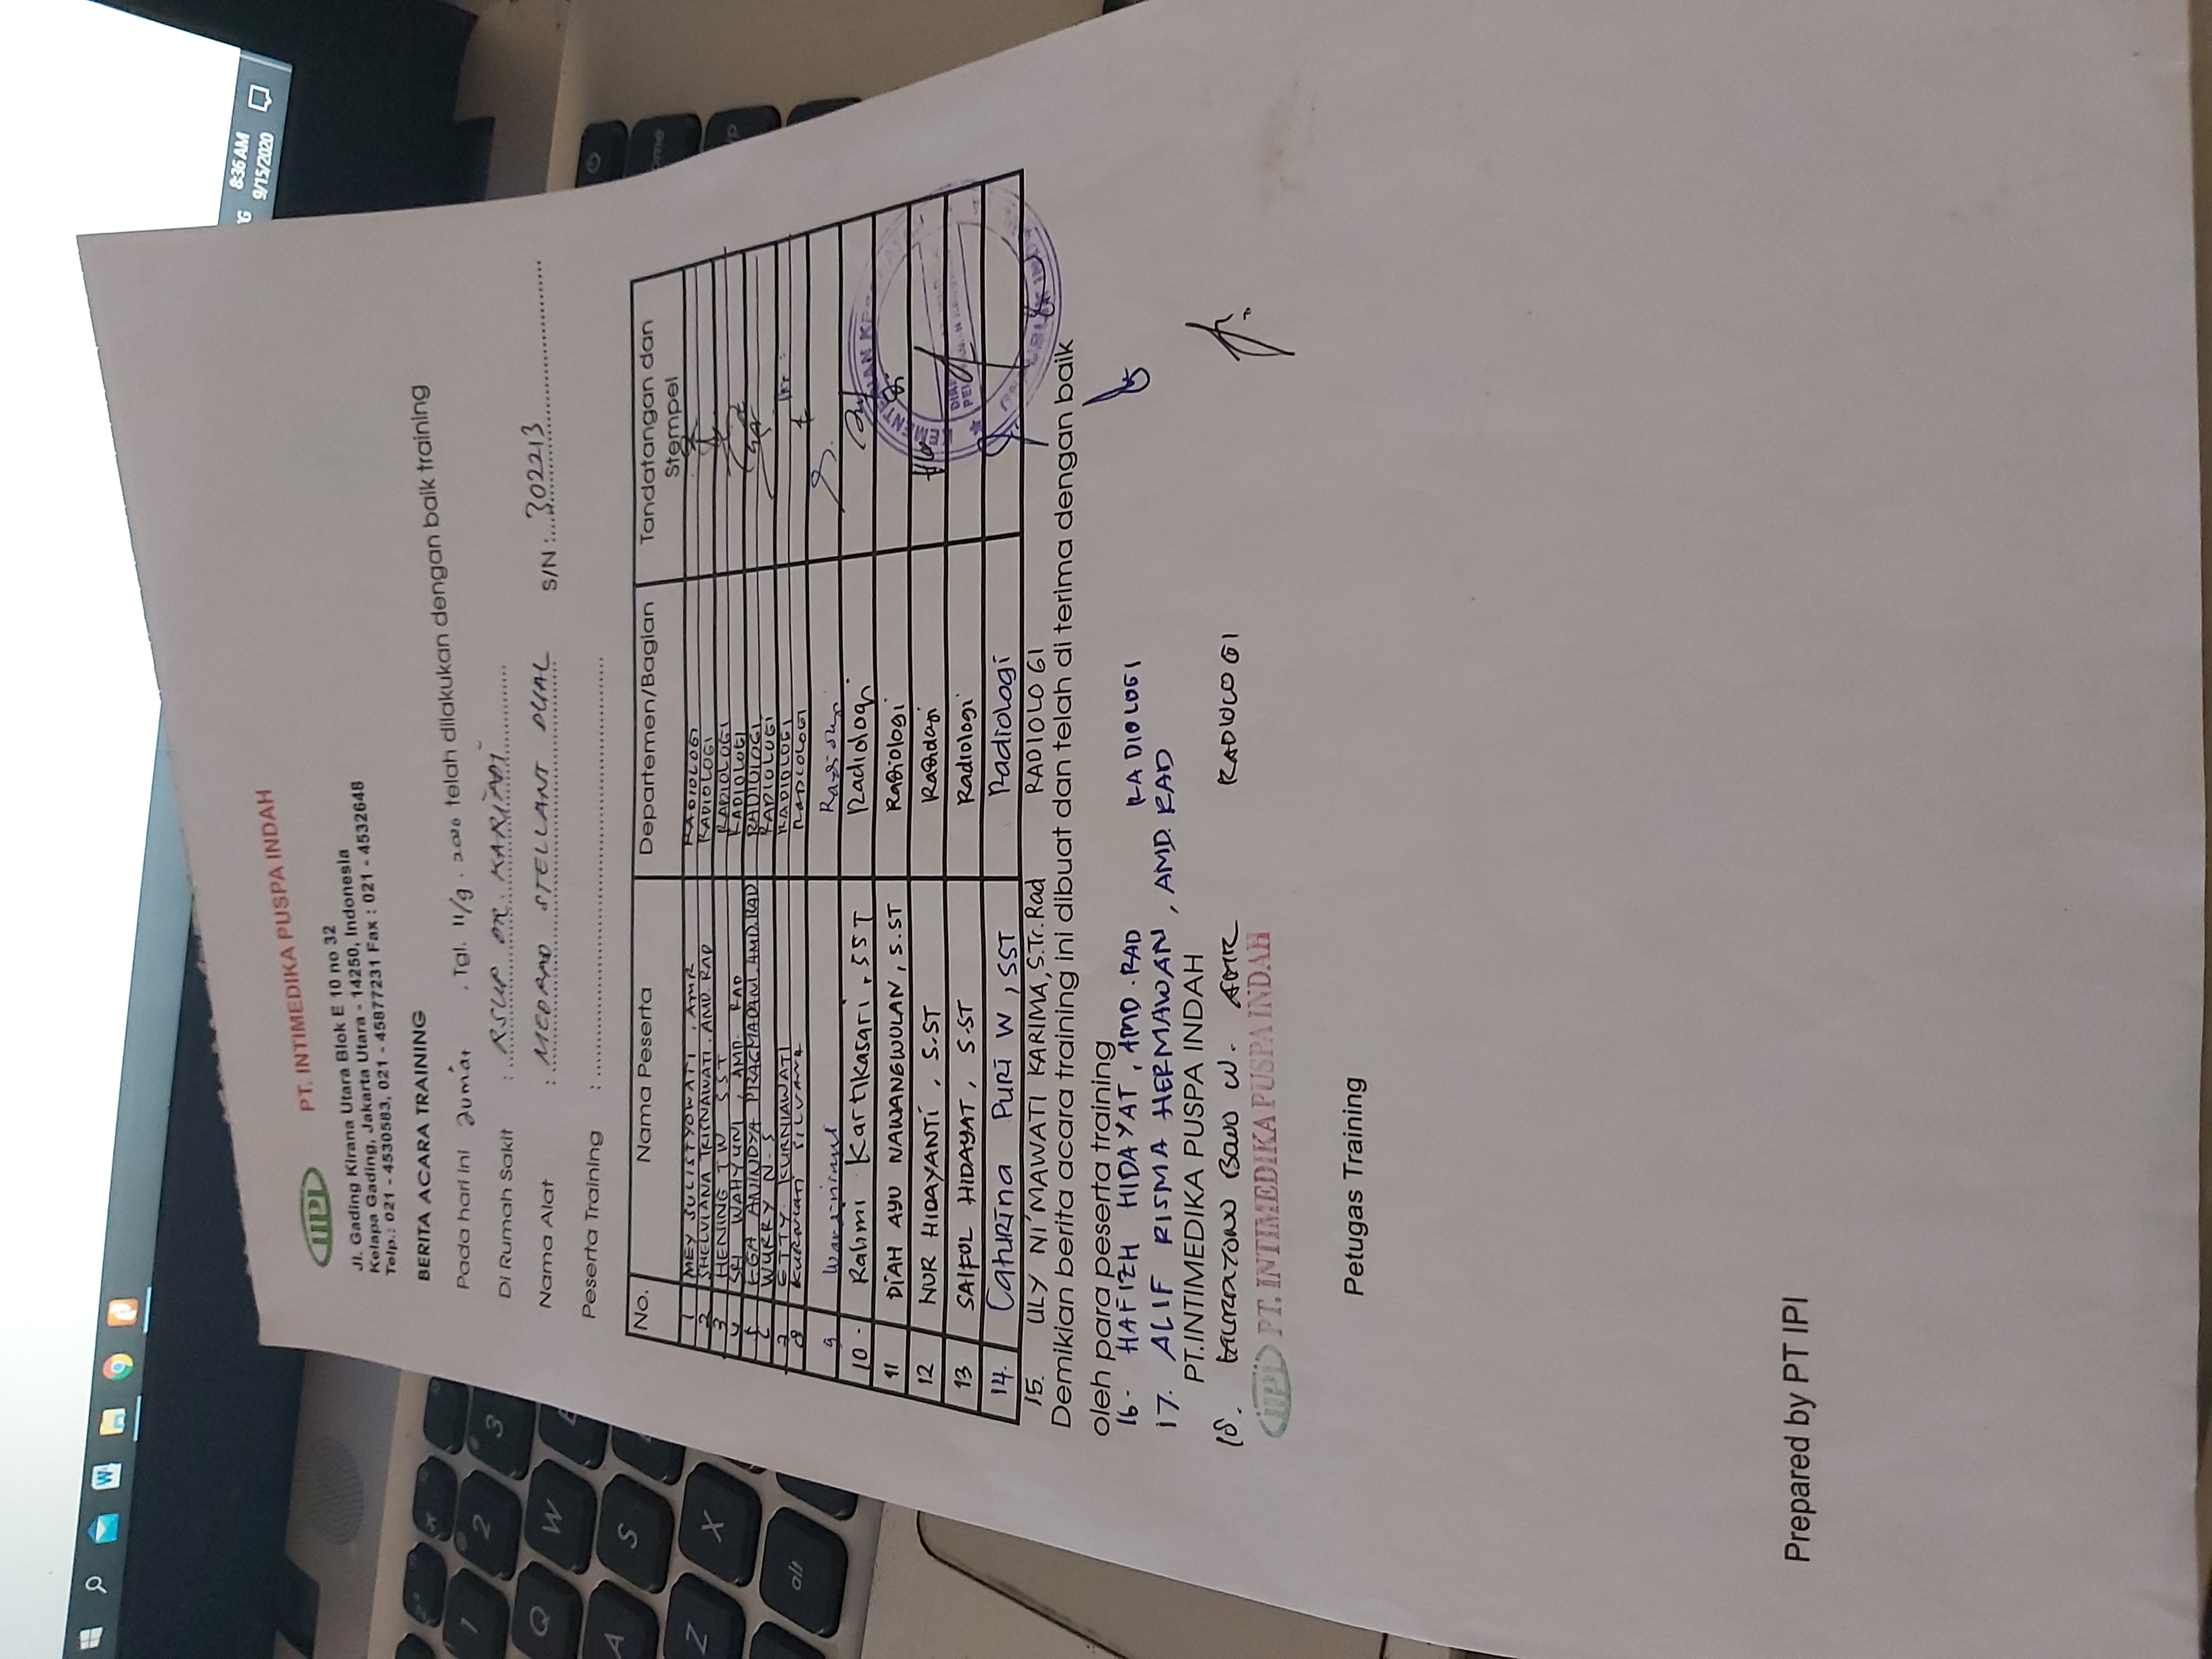 8:36 AM
9/15/2020
IIPI PT. INTIMEDIKA PUSPA INDAH
Jl. Gading Kirana Utara Blok E 10 no 32
Kelapa Gading, Jakarta Utara - 14250, Indonesia
Telp.: 021 - 4530583, 021 - 45877231 Fax : 021 - 4532648
BERITA ACARA TRAINING
Pada hari ini Jumat , Tgl. 11/9 . 2020 telah dilakukan dengan baik training
Di Rumah Sakit : RSUP DR. KARIADI
Nama Alat : MEDRAD STELLANT DUAL S/N : 302213
Peserta Training :
No. Nama Peserta Departemen/Bagian Tandatangan dan Stempel
1 MEY SULISTYOWATI , AMR RADIOLOGI
2 SHELVIANA TRISNAWATI. AMD. RAD RADIOLOGI
3 HENING TW SST RADIOLOGI
4 SRI WAHYUNI , AMD. RAD RADIOLOGI
5 EGA ANINDYA PRAGMADANI. AMD.RAD RADIOLOGI
6 WURRY N-S RADIOLOGI
7 ETTY. KURNIAWATI RADIOLOGI
8 KURNIATI SILVANA RADIOLOGI
9 Radiologi
10 - Rahmi Kartikasari, SST Radiologi
11 DIAH AYU NAWANGWULAN, S.ST Radiologi
12 NUR HIDAYANTI , S.ST Radiologi
13 SAIFUL HIDAYAT, S.ST Radiologi
14. Caturina PURI W, SST Radiologi
15. ULY NI'MAWATI KARIMA, S.Tr.Rad RADIOLOGI
Demikian berita acara training ini dibuat dan telah di terima dengan baik
oleh para peserta training
16. HAFIZH HIDAYAT, AMD.RAD RADIOLOGI
17. ALIF RISMA HERMAWAN, AMD. RAD
PT.INTIMEDIKA PUSPA INDAH
18. W. AMR RADIOLOGI
IIPI PT. INTIMEDIKA PUSPA INDAH
Petugas Training
Prepared by PT IPI